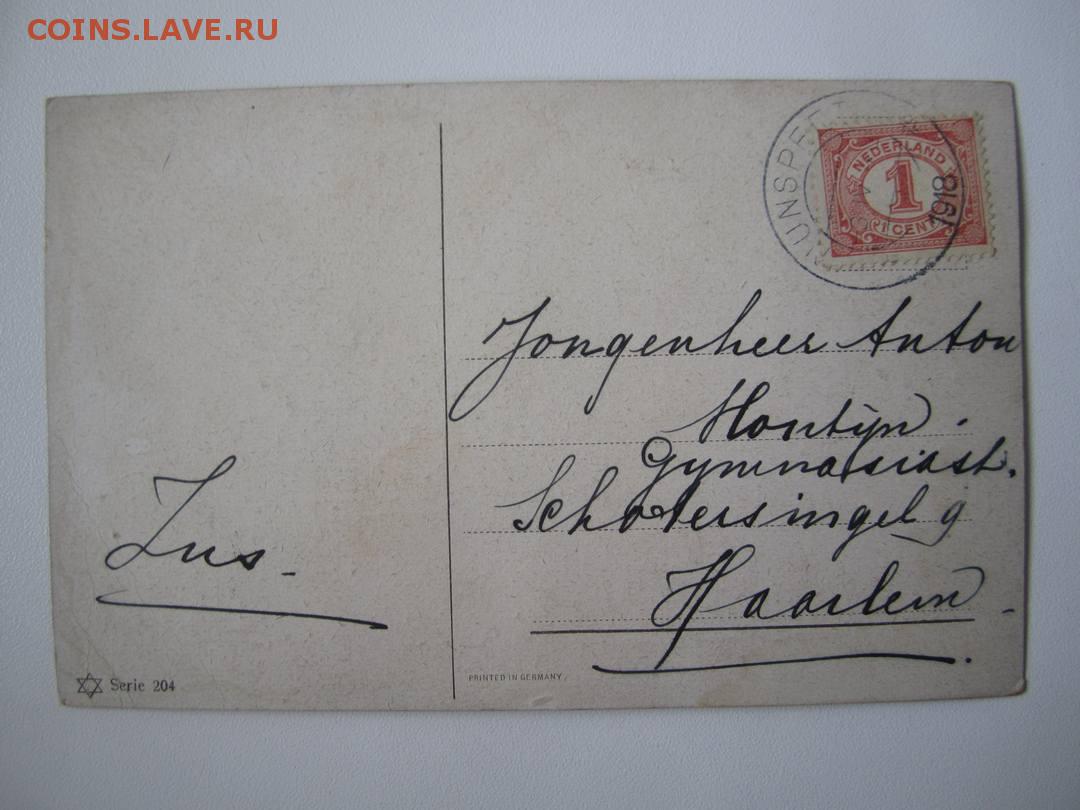 COINS.LAVE.RU
NUNSPEET
1918
NEDERLAND
1
1 CENT
Jongenheer Anton
Montijn.
Gymnasiast.
Schotersingel 9
Haarlem
Zus
Serie 204
PRINTED IN GERMANY